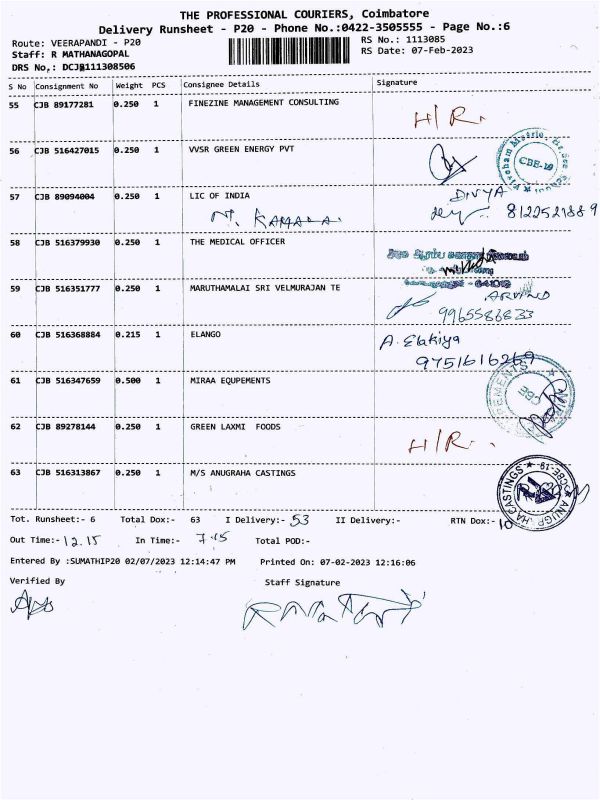 THE PROFESSIONAL COURIERS, Coimbatore
Delivery Runsheet - P20 - Phone No.:0422-3505555 - Page No.:6
Route: VEERAPANDI - P20
RS No.: 1113085
Staff: R MATHANAGOPAL
RS Date: 07-Feb-2023
DRS No,: DCJB111308506
S No Consignment No Weight PCS Consignee Details Signature
55 CJB 89177281 0.250 1 FINEZINE MANAGEMENT CONSULTING H/R.
56 CJB 516427015 0.250 1 VVSR GREEN ENERGY PVT
CBE-19
57 CJB 89094004 0.250 1 LIC OF INDIA DIVYA
N. KAMALA. 8122521889
58 CJB 516379930 0.250 1 THE MEDICAL OFFICER
59 CJB 516351777 0.250 1 MARUTHAMALAI SRI VELMURAJAN TE ARVIND
9965586833
60 CJB 516368884 0.215 1 ELANGO A. Elakiya
9751616269
61 CJB 516347659 0.500 1 MIRAA EQUPEMENTS
CBE
62 CJB 89278144 0.250 1 GREEN LAXMI FOODS H/R.
63 CJB 516313867 0.250 1 M/S ANUGRAHA CASTINGS
Tot. Runsheet:- 6 Total Dox:- 63 I Delivery:- 53 II Delivery:- RTN Dox:- 10
Out Time:- 12.15 In Time:- 7.15 Total POD:-
Entered By :SUMATHIP20 02/07/2023 12:14:47 PM Printed On: 07-02-2023 12:16:06
Verified By Staff Signature